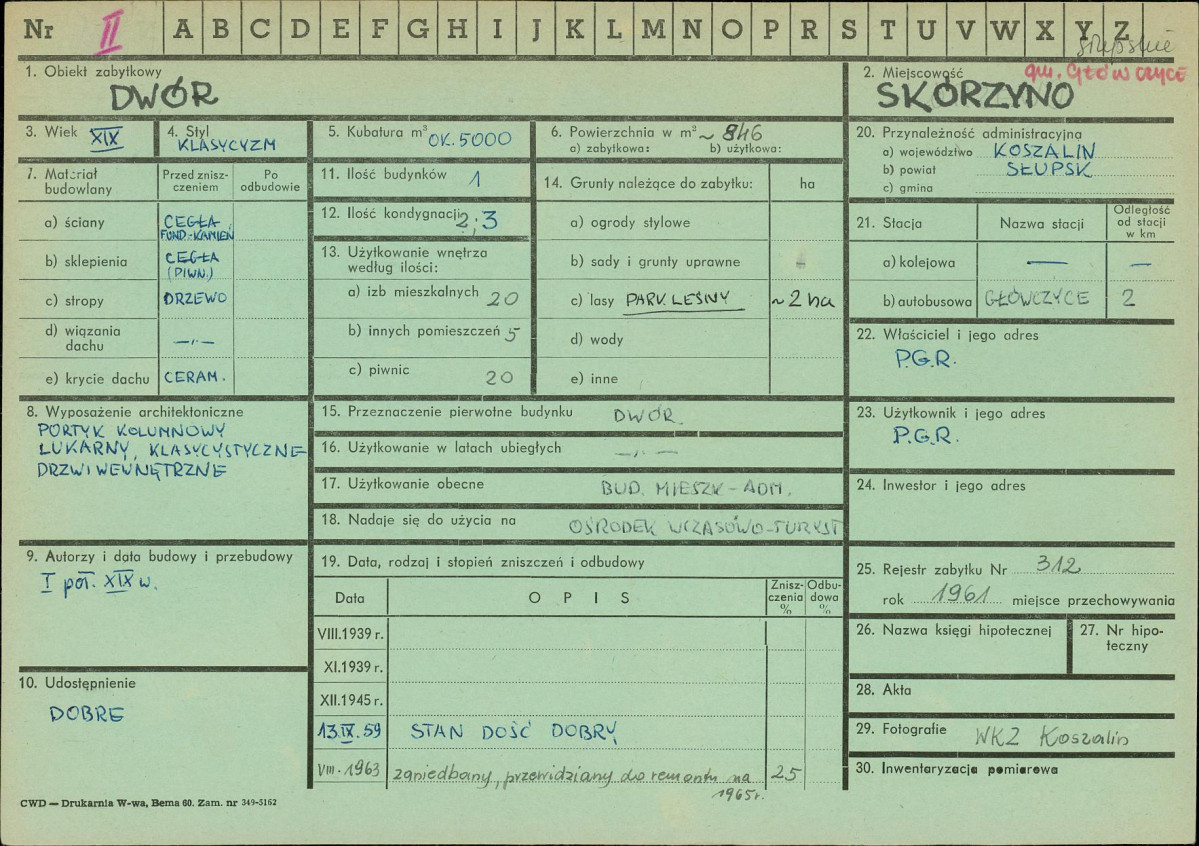 Nr II A B C D E F G H I J K L M N O P R S T U V W X Y Z
słupskie
gm. GŁÓWCZYCE
1. Obiekt zabytkowy
DWÓR
2. Miejscowość
SKÓRZYNO
3. Wiek XIX
4. Styl
KLASYCYZM
5. Kubatura m³ OK. 5000
6. Powierzchnia w m² ~ 846
a) zabytkowa: b) użytkowa:
7. Materiał budowlany
Przed zniszczeniem
Po odbudowie
a) ściany CEGŁA
FUND.-KAMIEŃ
b) sklepienia CEGŁA
(PIWN.)
c) stropy DRZEWO
d) wiązania dachu —„—
e) krycie dachu CERAM.
8. Wyposażenie architektoniczne
PORTYK KOLUMNOWY
LUKARNY, KLASYCYSTYCZNE
DRZWI WEWNĘTRZNE
9. Autorzy i data budowy i przebudowy
I poł. XIX w.
10. Udostępnienie
DOBRE
11. Ilość budynków 1
12. Ilość kondygnacji 2; 3
13. Użytkowanie wnętrza
według ilości:
a) izb mieszkalnych 20
b) innych pomieszczeń 5
c) piwnic 20
14. Grunty należące do zabytku: ha
a) ogrody stylowe
b) sady i grunty uprawne
c) lasy PARK LEŚNY ~ 2 ha
d) wody
e) inne
15. Przeznaczenie pierwotne budynku DWÓR.
16. Użytkowanie w latach ubiegłych —„—
17. Użytkowanie obecne BUD. MIESZK - ADM.
18. Nadaje się do użycia na OŚRODEK WCZASOWO-TURYST
19. Data, rodzaj i stopień zniszczeń i odbudowy
Data O P I S Zniszczenia % Odbudowa %
VIII.1939 r.
XI.1939 r.
XII.1945 r.
13.IX.59 STAN DOŚĆ DOBRY
VIII-1963 zaniedbany, przewidziany do remontu na 25
1965 r.
20. Przynależność administracyjna
a) województwo KOSZALIN
b) powiat SŁUPSK
c) gmina
21. Stacja Nazwa stacji Odległość od stacji w km
a) kolejowa — —
b) autobusowa GŁÓWCZYCE 2
22. Właściciel i jego adres
P.G.R.
23. Użytkownik i jego adres
P.G.R.
24. Inwestor i jego adres
25. Rejestr zabytku Nr 312
rok 1961 miejsce przechowywania
26. Nazwa księgi hipotecznej
27. Nr hipoteczny
28. Akta
29. Fotografie WKZ Koszalin
30. Inwentaryzacja pomiarowa
CWD — Drukarnia W-wa, Bema 60. Zam. nr 349-5162